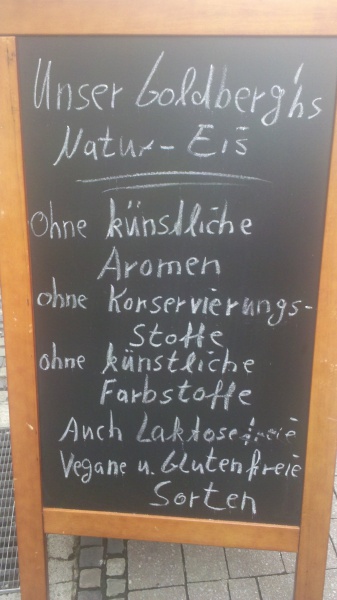 Unser Goldberg'hs
Natur-Eis
Ohne künstliche
Aromen
ohne Konservierungs-
Stoffe
ohne künstliche
Farbstoffe
Auch Laktosefreie
Vegane u. Glutenfreie
Sorten